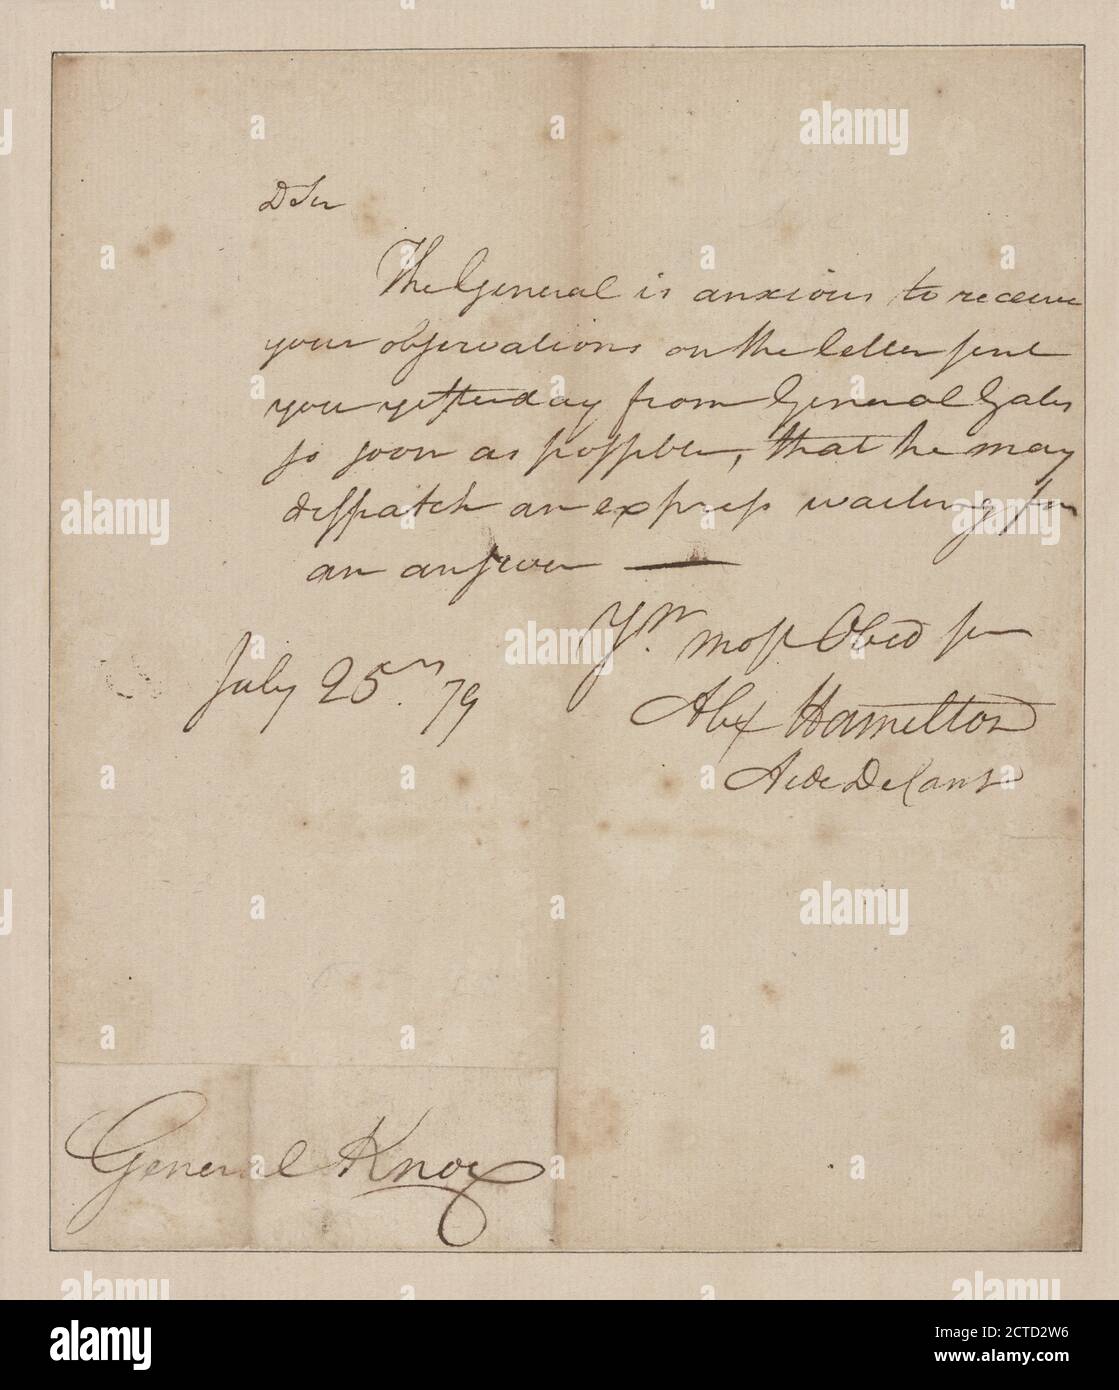 D Sir
The General is anxious to receive
your observations on the letter sent
you yesterday from General Gates
so soon as possible, that he may
disspatch an express waiting for
an answer —
Yr. most Obed ser
July 25th. 79
Alex Hamilton
Aide De Camp
General Knox
alamy
Image ID: 2CTD2W6
www.alamy.com